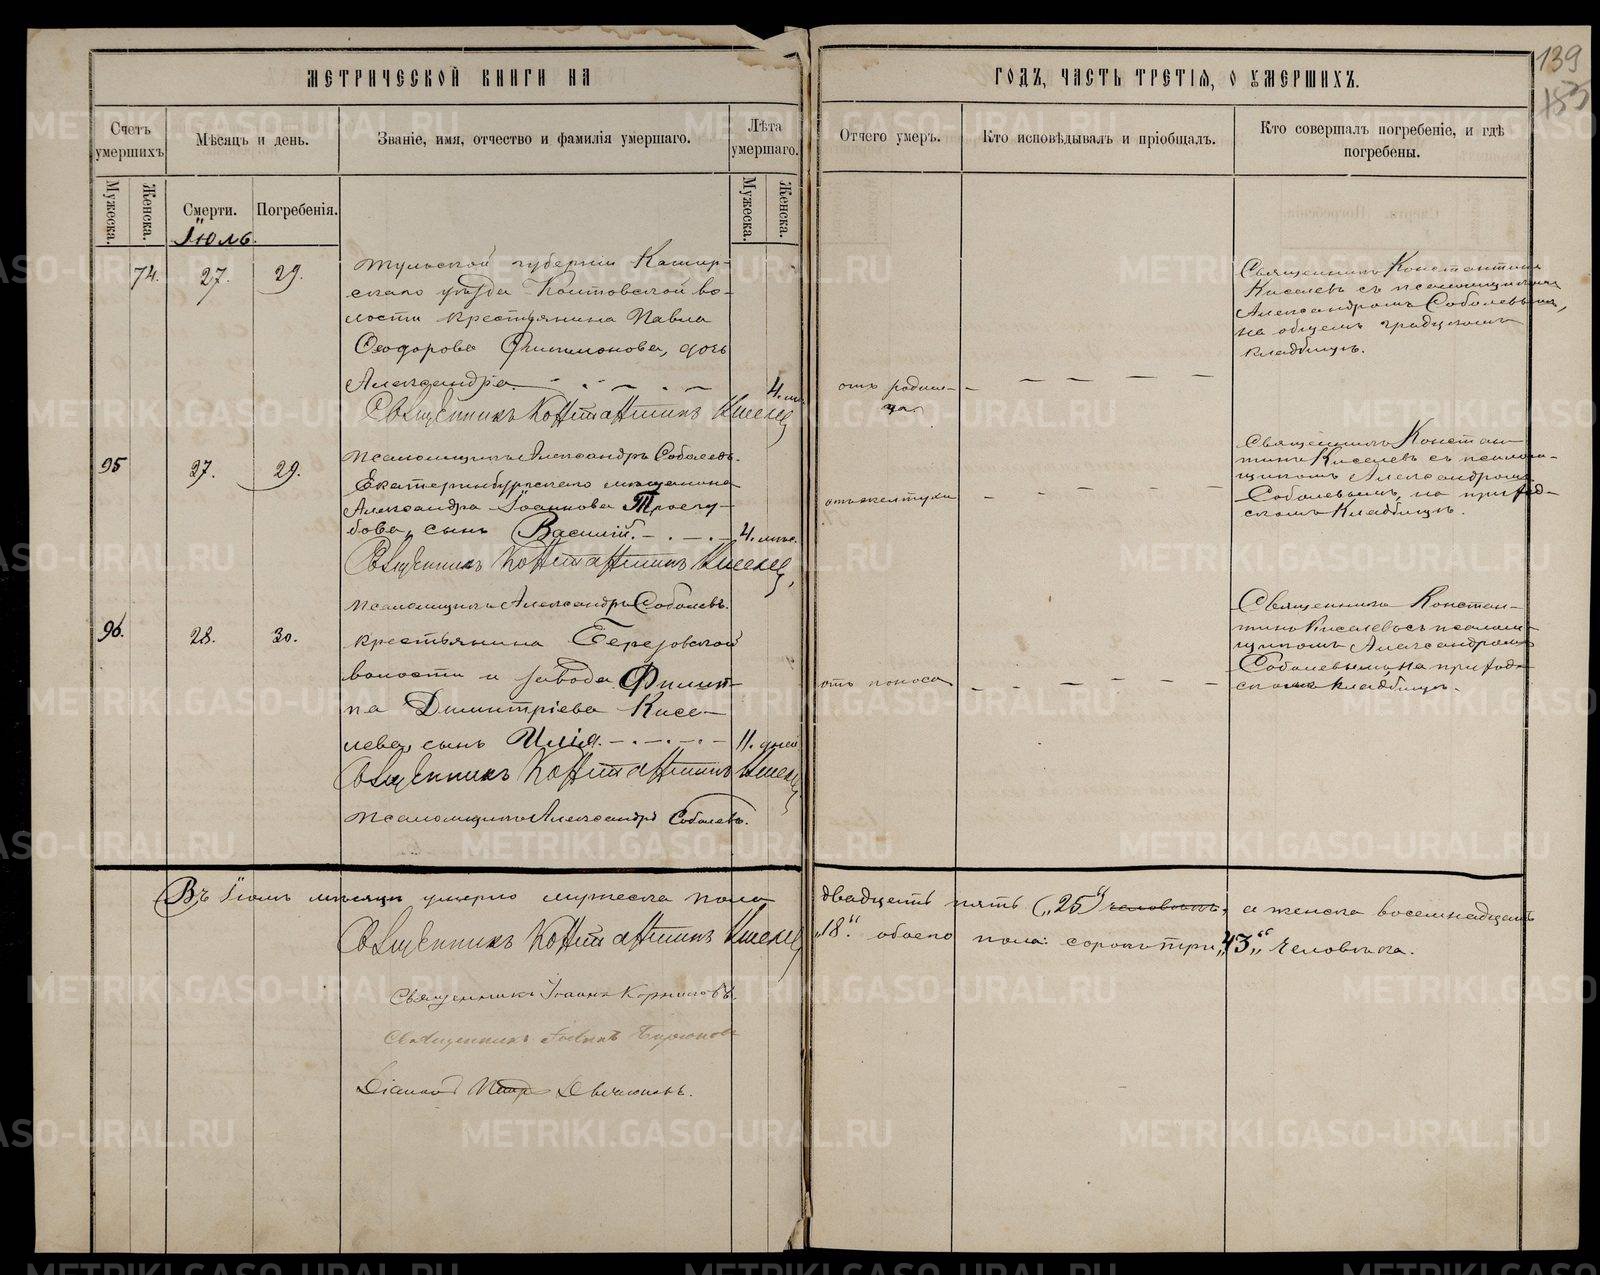 МЕТРИЧЕСКОЙ КНИГИ НА
ГОДЪ, ЧАСТЬ ТРЕТІЯ, О УМЕРШИХЪ.
139
Счетъ умершихъ
Мѣсяцъ и день.
Званіе, имя, отчество и фамилія умершаго.
Лѣта умершаго.
Отчего умеръ.
Кто исповѣдывалъ и пріобщалъ.
Кто совершалъ погребеніе, и гдѣ
погребены.
Мужеска.
Женска.
Смерти.
Погребенія.
Мужеска.
Женска.
Іюль.
74. 27. 29.
Тульской губерніи Кашир-
скаго уѣзда во-
лости крестьянина Павла
Ѳеодорова Филимонова, дочь
Александра 4.
отъ родим-
ца.
Священникъ Константинъ
Киселевъ съ псаломщикомъ
Александромъ Соболевымъ,
на общемъ градскомъ
кладбищѣ.
Священникъ Константинъ Киселевъ
Псаломщикъ Александръ Соболевъ.
95 27. 29.
Екатеринбургскаго мѣщанина
Александра Іоаннова
сынъ Василій. 4. мѣс.
отъ желтухи
Священникъ Констан-
тинъ Киселевъ съ псалом-
щикомъ Александромъ
Соболевымъ, на приход-
скомъ кладбищѣ.
Священникъ Константинъ Киселевъ
Псаломщикъ Александръ Соболевъ.
96. 28. 30.
крестьянина Березовской
волости и завода Филип-
па Димитріева Кисе-
лева, сынъ Илія. 11. дней
отъ поноса
Священникъ Констан-
тинъ Киселевъ съ псалом-
щикомъ Александромъ
Соболевымъ, на приход-
скомъ кладбищѣ.
Священникъ Константинъ Киселевъ
Псаломщикъ Александръ Соболевъ.
Въ Іюлѣ мѣсяцѣ умерло мужеска пола двадцать пять („25“) человѣкъ, а женска восемнадцать
„18“ обоего пола: сорокъ три „43“ человѣка.
Священникъ Константинъ Киселевъ
Священникъ Іоаннъ
Священникъ
Діаконъ Петръ
METRIKI.GASO-URAL.RU